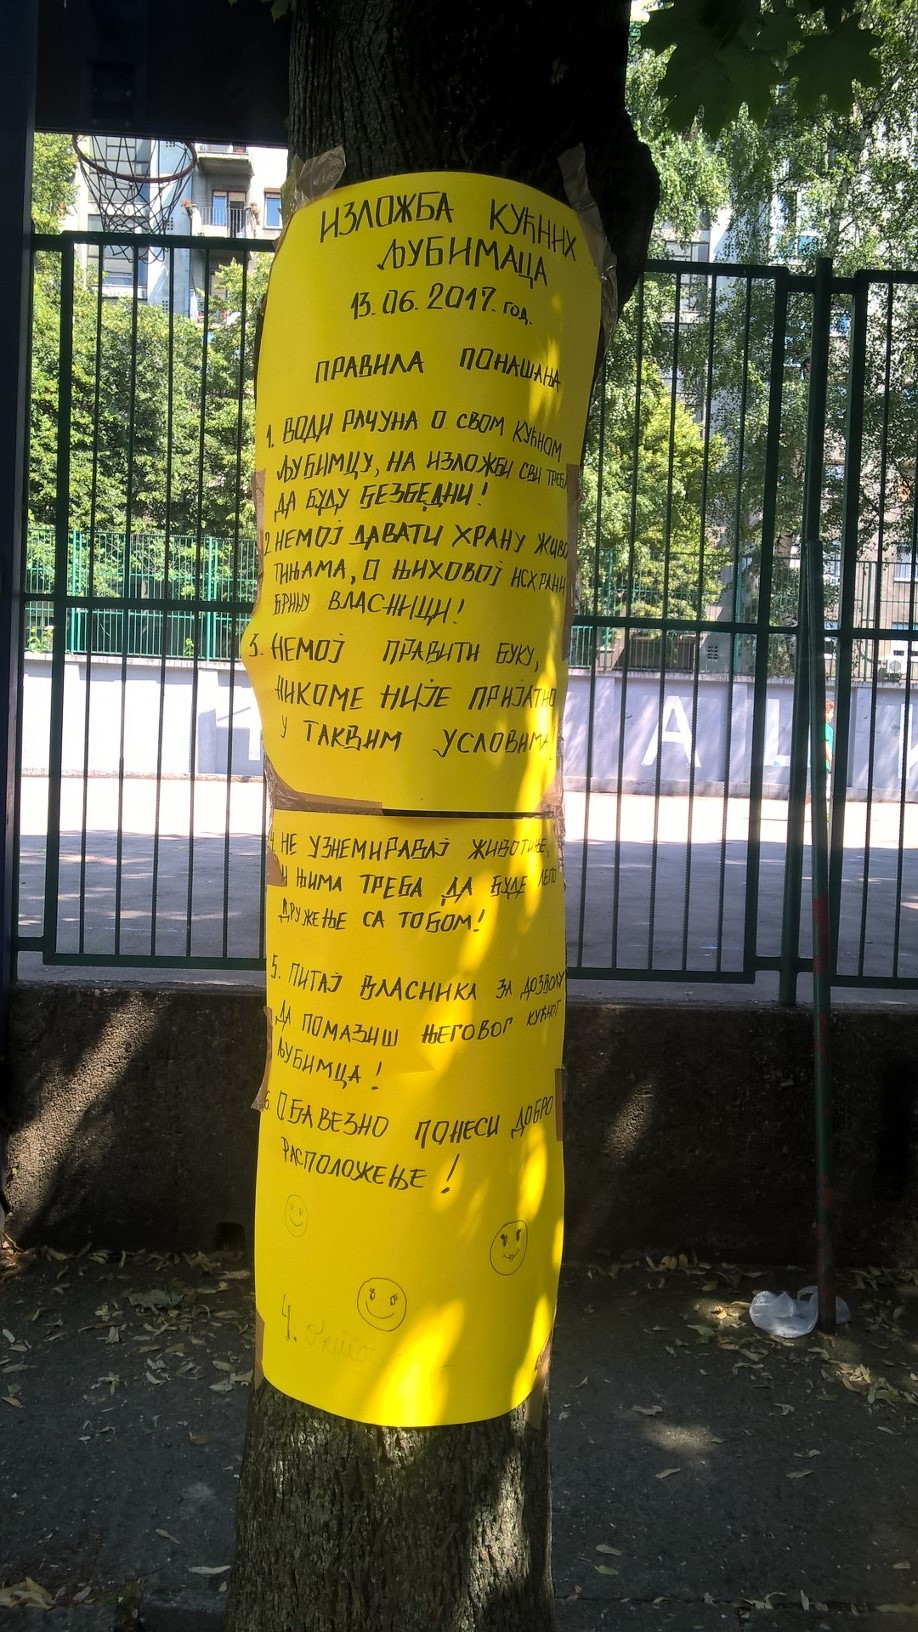 ИЗЛОЖБА КУЋНИХ
ЉУБИМАЦА
13.06.2017. год.
ПРАВИЛА ПОНАШАЊА
1. ВОДИ РАЧУНА О СВОМ КУЋНОМ
ЉУБИМЦУ, НА ИЗЛОЖБИ СВИ ТРЕБА
ДА БУДУ БЕЗБЕДНИ!
2. НЕМОЈ ДАВАТИ ХРАНУ ЖИВО
ТИЊАМА, О ЊИХОВОЈ ИСХРАНИ
БРИНУ ВЛАСНИЦИ!
3. НЕМОЈ ПРАВИТИ БУКУ,
НИКОМЕ НИЈЕ ПРИЈАТНО
У ТАКВИМ УСЛОВИМА!
4. НЕ УЗНЕМИРАВАЈ ЖИВОТИЊЕ,
И ЊИМА ТРЕБА ДА БУДЕ ЛЕПО
ДРУЖЕЊЕ СА ТОБОМ!
5. ПИТАЈ ВЛАСНИКА ЗА ДОЗВОЛУ
ДА ПОМАЗИШ ЊЕГОВОГ КУЋНОГ
ЉУБИМЦА!
6. ОБАВЕЗНО ПОНЕСИ ДОБРО
РАСПОЛОЖЕЊЕ!
4.